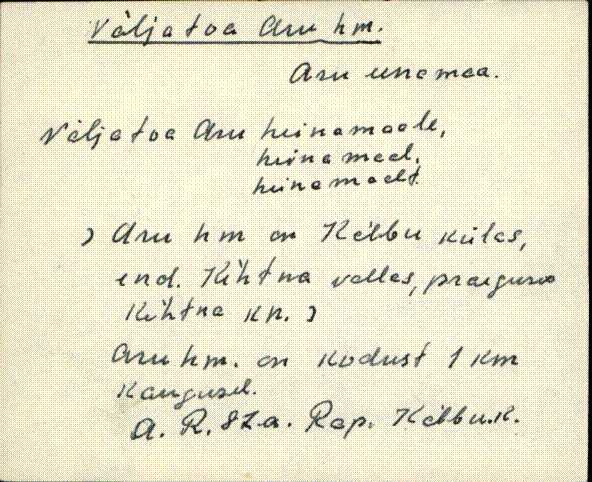 Väljatoa Aru hm.
Aru einamaa.
Väljatoa Aru heinamaale,
heinamaal,
heinamaalt.
) Aru hm on Kelbu külas,
end. Kehtna vallas, praeguse
Kehtna kn. )
Aru hm. on kodust 1 km
kaugusel.
A. R. 82 a. Rap. Kelbu k.